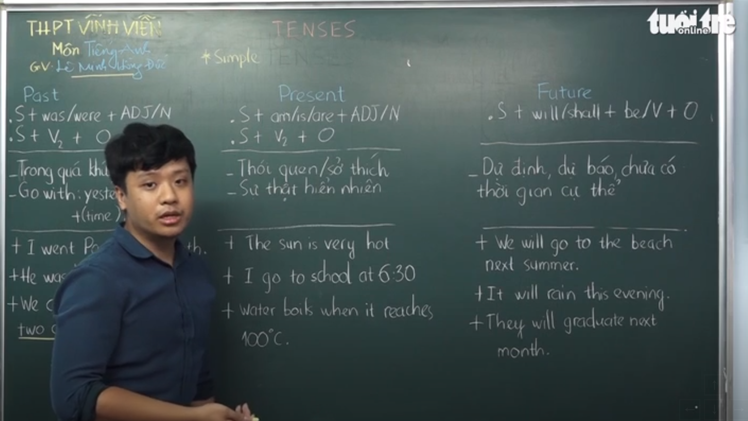 THPT VĨNH VIỄN
TENSES
tuổi trẻ
online
Môn Tiếng Anh
GV: Lê Minh
+ Simple
Past
. S + was/were + ADJ/N
. S + V2 + O
- Trong quá
- Go with:
+(time)
+ I went
+ He was
+ We
two
Present
. S + am/is/are + ADJ/N
. S + V2 + O
- Thói quen/sở thích
- Sự thật hiển nhiên
+ The sun is very hot
+ I go to school at 6:30
+ Water boils when it reaches
100°C.
Future
. S + will/shall + be/V + O
- Dự định, dự báo, chưa có
thời gian cụ thể
+ We will go to the beach
next summer.
+ It will rain this evening.
+ They will graduate next
month.